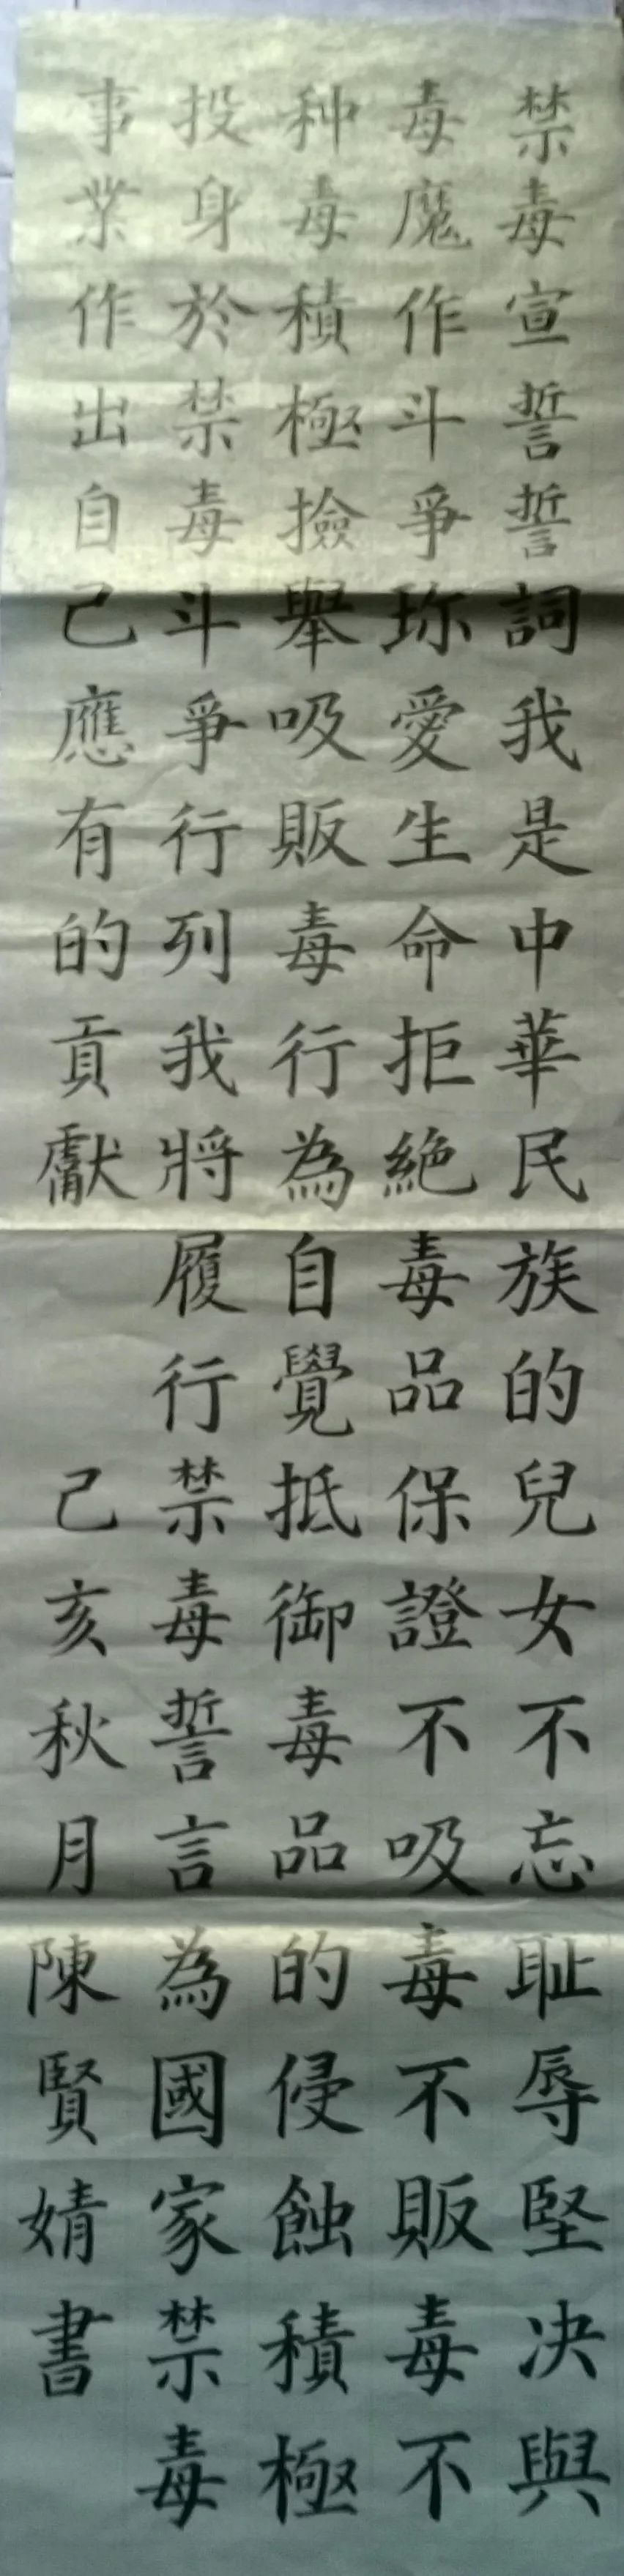 禁毒宣誓誓詞我是中華民族的兒女不忘耻辱堅决與
毒魔作斗爭珎愛生命拒絶毒品保證不吸毒不販毒不
种毒積極撿舉吸販毒行為自覺抵御毒品的侵蝕積極
投身於禁毒斗爭行列我將履行禁毒誓言為國家禁毒
事業作出自己應有的貢獻
己亥秋月陳賢婧書